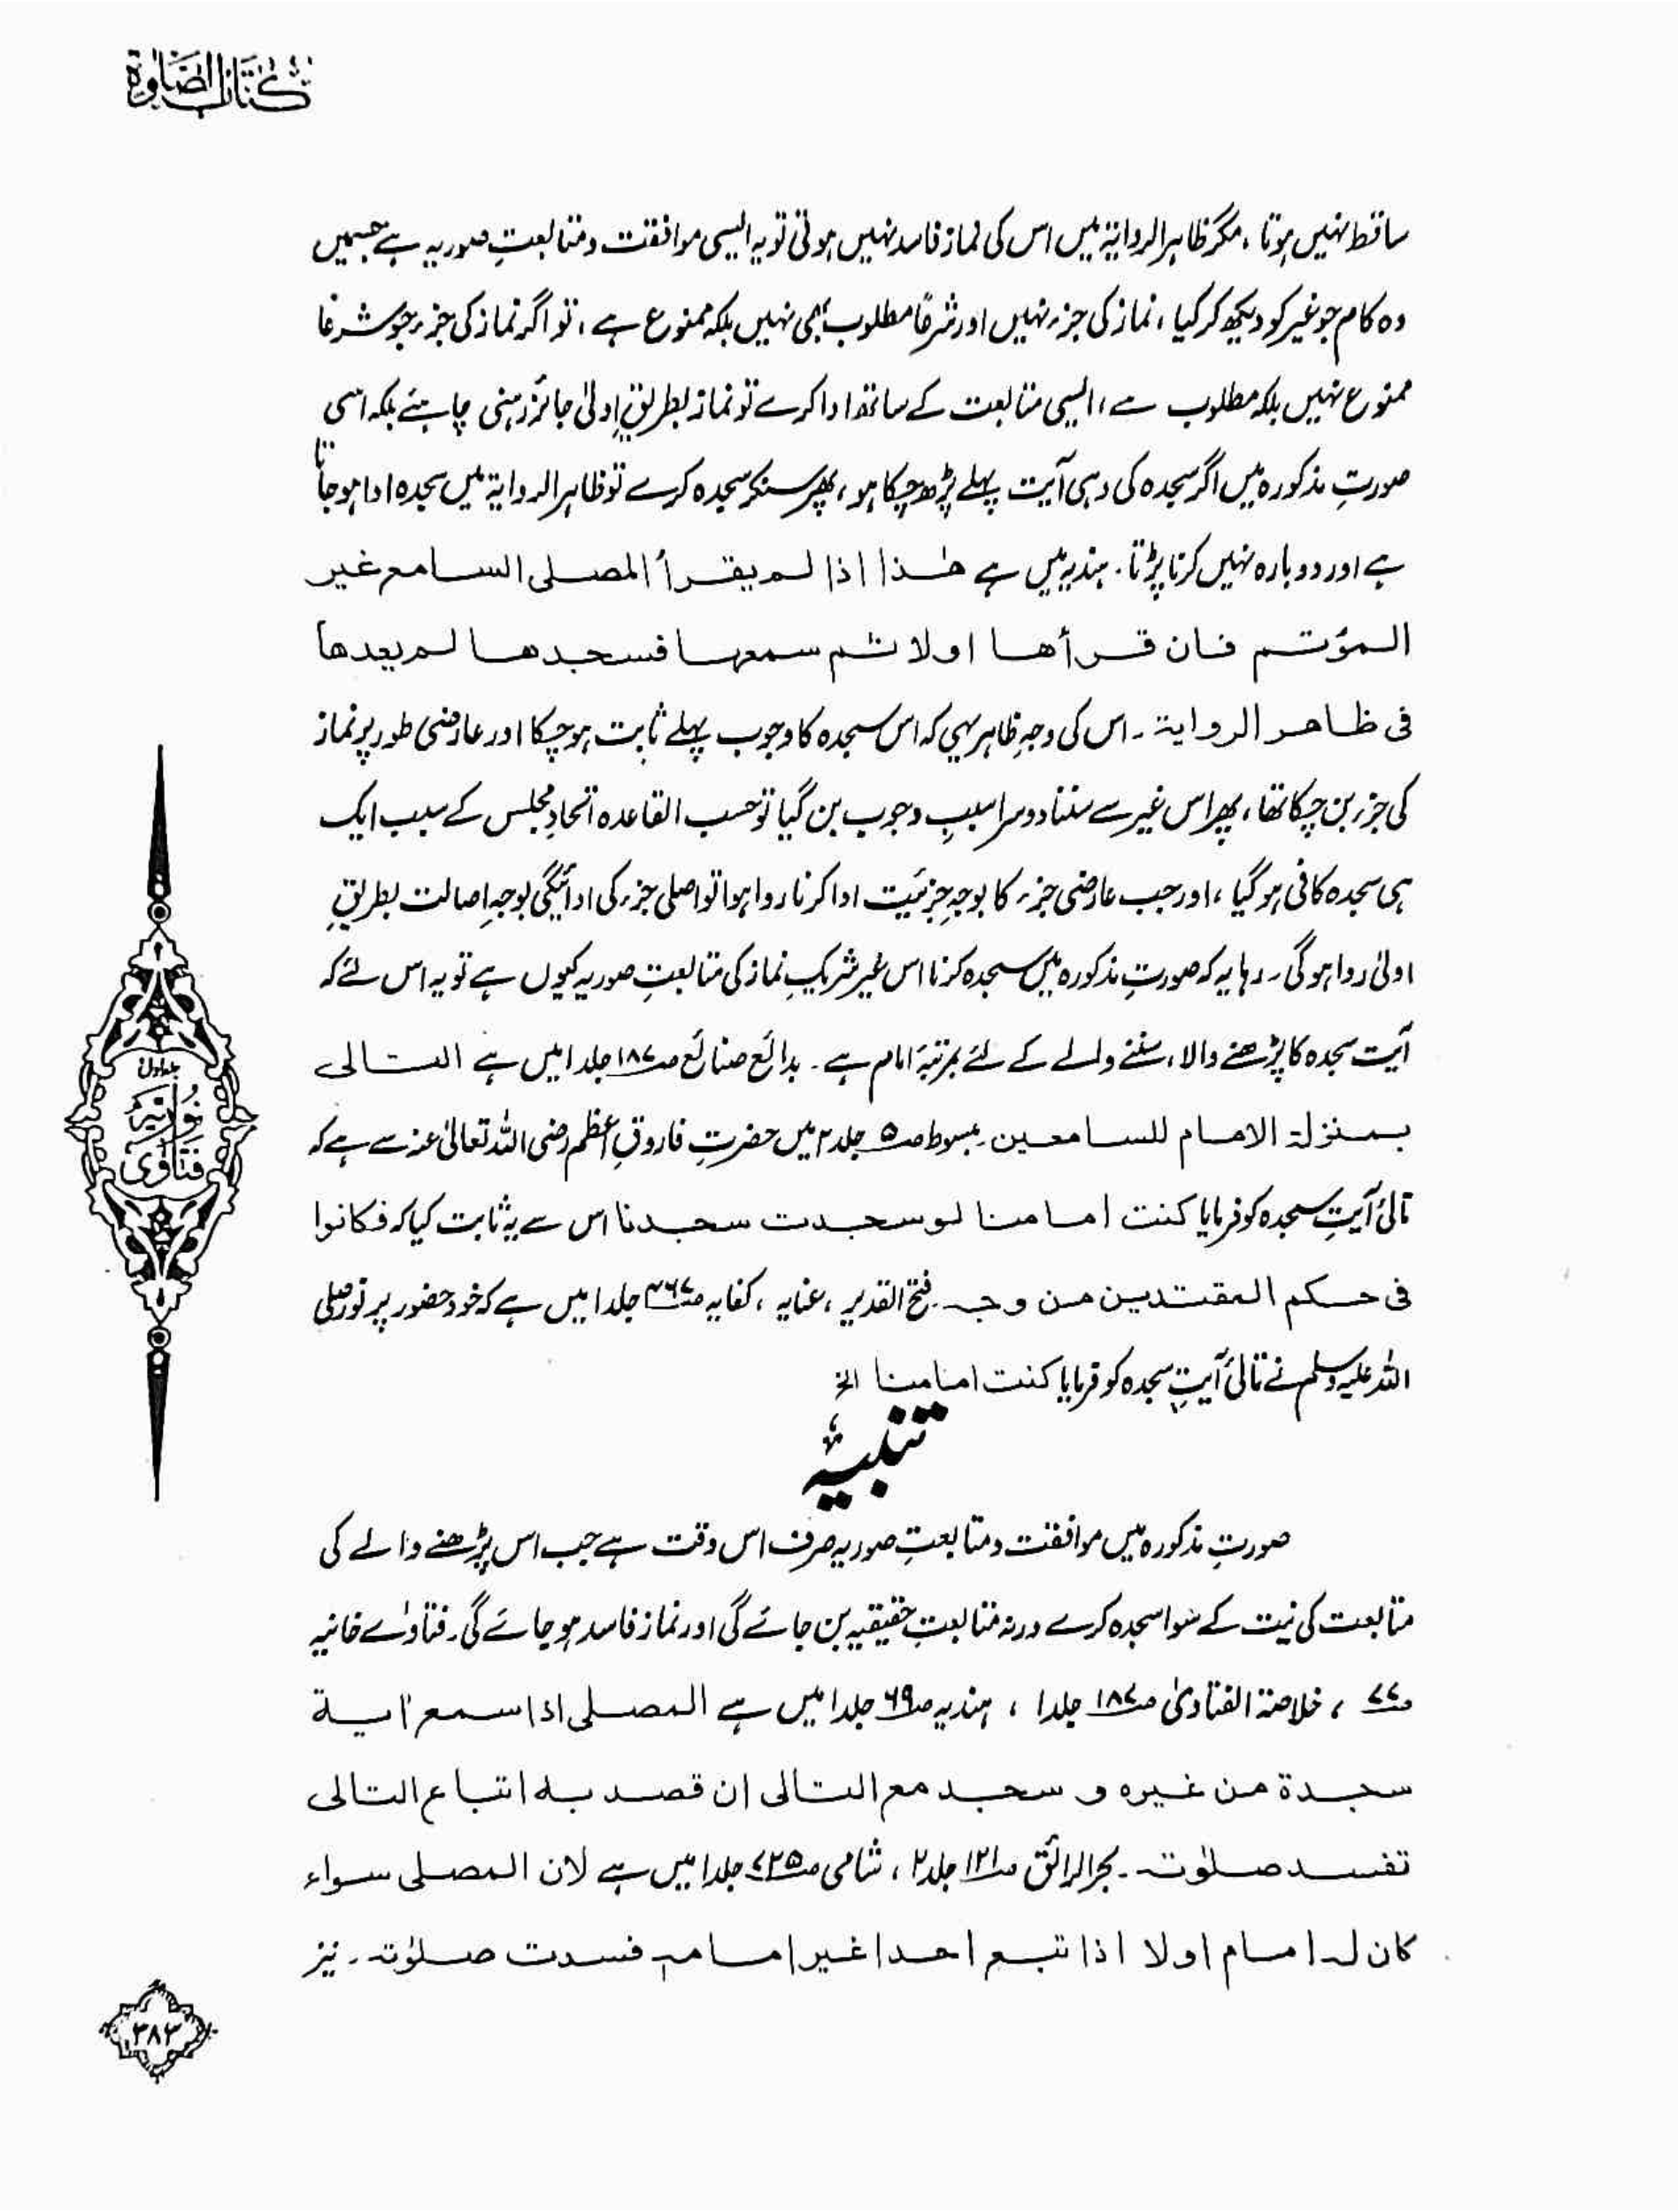 کتاب الصلوۃ
ساقط نہیں ہوتا ، مگر ظاہر الروایۃ میں اس کی نماز فاسد نہیں ہوتی تو یہ ایسی موافقت و متابعتِ صوریہ ہے جسمیں
وہ کام جو غیر کو دیکھ کر کیا ، نماز کی جزء نہیں اور شرعًا مطلوب بھی نہیں بلکہ ممنوع ہے ، تو اگر نماز کی جزء جو شرعًا
ممنوع نہیں بلکہ مطلوب ہے ، ایسی متابعت کے ساتھ ادا کرے تو نماز بطریقِ اولیٰ جائز رہنی چاہئے بلکہ اسی
صورتِ مذکورہ میں اگر سجدہ کی وہی آیت پہلے پڑھ چکا ہو ، پھر سنکر سجدہ کرے تو ظاہر الروایۃ میں سجدہ ادا ہو جاتا
ہے اور دوبارہ نہیں کرنا پڑتا ۔ ہندیہ میں ہے ھٰذا اذا لم یقرأ المصلی السامع غیر
المؤتم فان قرأھا اولا ثم سمعھا فسجدھا لم یعدھا
فی ظاھر الروایۃ ۔ اس کی وجہِ ظاہر یہی کہ اس سجدہ کا وجوب پہلے ثابت ہو چکا اور عارضی طور پر نماز
کی جزء بن چکا تھا ، پھر اس غیر سے سننا دوسرا سببِ وجوب بن گیا تو حسب القاعدہ اتحادِ مجلس کے سبب ایک
ہی سجدہ کافی ہو گیا ، اور جب عارضی جزء کا بوجہِ جزئیت ادا کرنا روا ہوا تو اصلی جزء کی ادائیگی بوجہِ اصالت بطریقِ
اولیٰ روا ہو گی ۔ رہا یہ کہ صورتِ مذکورہ میں سجدہ کرنا اس غیر شریکِ نماز کی متابعتِ صوریہ کیوں ہے تو یہ اس لئے کہ
آیت سجدہ کا پڑھنے والا ، سننے والے کے لئے بمرتبۂ امام ہے ۔ بدائع صنائع صـ۱۸۷ جلد ۱ میں ہے التالی
بمنزلۃ الامام للسامعین ۔ مبسوط صـ۵ جلد ۲ میں حضرتِ فاروقِ اعظم رضی اللہ تعالیٰ عنہ سے ہے کہ
تالئ آیتِ سجدہ کو فرمایا کنت امامنا لو سجدت سجدنا اس سے یہ ثابت کیا کہ فکانوا
فی حکم المقتدین من وجہ ۔ فتح القدیر ، عنایہ ، کفایہ صـ۴۶۷ جلد ۱ میں ہے کہ خود حضور پر نور صلی
اللہ علیہ وسلم نے تالئ آیتِ سجدہ کو فرمایا کنت امامنا الخ
تنبیہ
صورتِ مذکورہ میں موافقت و متابعتِ صوریہ صرف اس وقت ہے جب اس پڑھنے والے کی
متابعت کی نیت کے سوا سجدہ کرے ورنہ متابعتِ حقیقیہ بن جائے گی اور نماز فاسد ہو جائے گی ۔ فتاوٰے خانیہ
صـ۷۷ ، خلاصۃ الفتاویٰ صـ۱۸۷ جلد ۱ ، ہندیہ صـ۶۹ جلد ۱ میں ہے المصلی اذا سمع اٰیۃ
سجدۃ من غیرہ و سجد مع التالی ان قصد بہ اتباع التالی
تفسد صلٰوتہ ۔ بحر الرائق صـ۱۲۱ جلد ۲ ، شامی صـ۷۲۵ جلد ۱ میں ہے لان المصلی سواء
کان لہ امام اولا اذا تبع احدا غیر امامہ فسدت صلٰوتہ ۔ نیز
جلد اول
نوریہ
فتاوٰی
۳۸۳